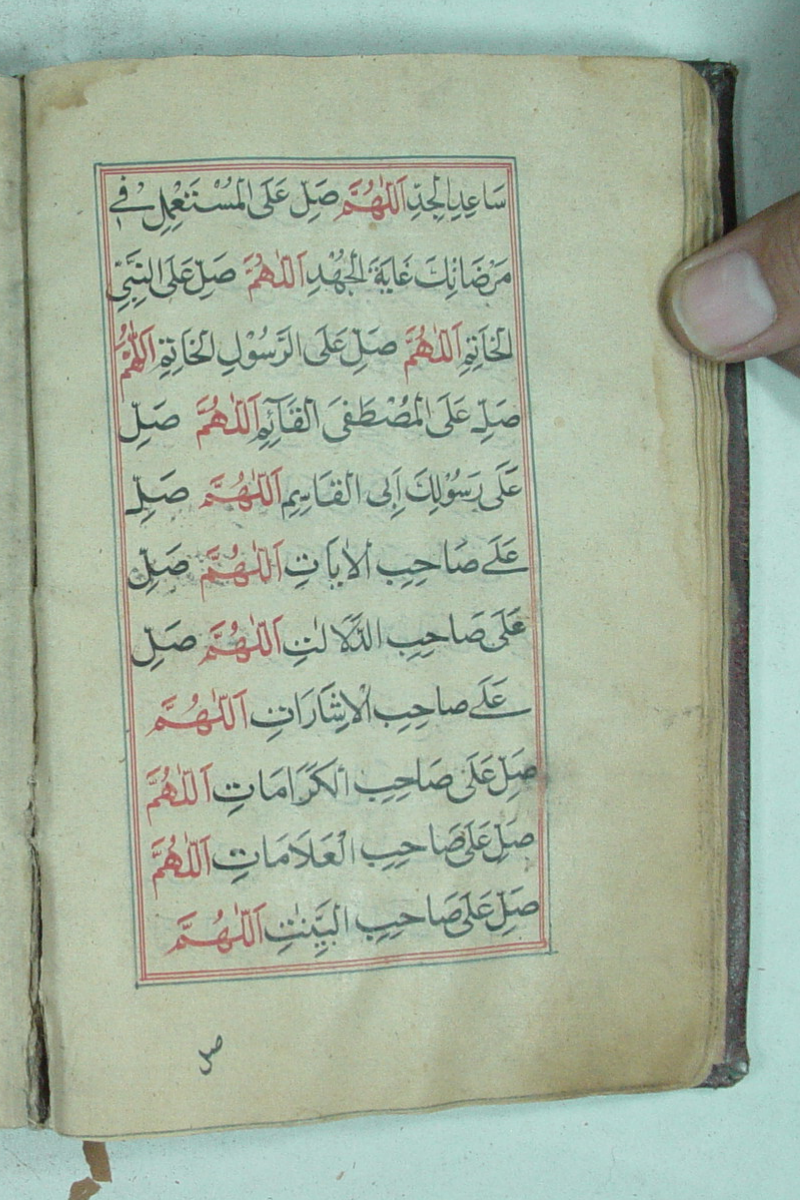 سَاعِدِ الْجِدِّ اَللّٰهُمَّ صَلِّ عَلَى الْمُسْتَعْمِلِ فِي
مَرْضَاتِكَ غَايَةَ الْجُهْدِ اَللّٰهُمَّ صَلِّ عَلَى النَّبِيِّ
الْخَاتِمِ اَللّٰهُمَّ صَلِّ عَلَى الرَّسُوْلِ الْخَاتِمِ اَللّٰهُمَّ
صَلِّ عَلَى الْمُصْطَفَى الْقَآئِمِ اَللّٰهُمَّ صَلِّ
عَلَى رَسُوْلِكَ اَبِى الْقَاسِمِ اَللّٰهُمَّ صَلِّ
عَلَى صَاحِبِ الْاٰيَاتِ اَللّٰهُمَّ صَلِّ
عَلَى صَاحِبِ الدَّلَالَاتِ اَللّٰهُمَّ صَلِّ
عَلَى صَاحِبِ الْاِشَارَاتِ اَللّٰهُمَّ
صَلِّ عَلَى صَاحِبِ الْكَرَامَاتِ اَللّٰهُمَّ
صَلِّ عَلَى صَاحِبِ الْعَلَامَاتِ اَللّٰهُمَّ
صَلِّ عَلَى صَاحِبِ الْبَيِّنٰتِ اَللّٰهُمَّ
صل